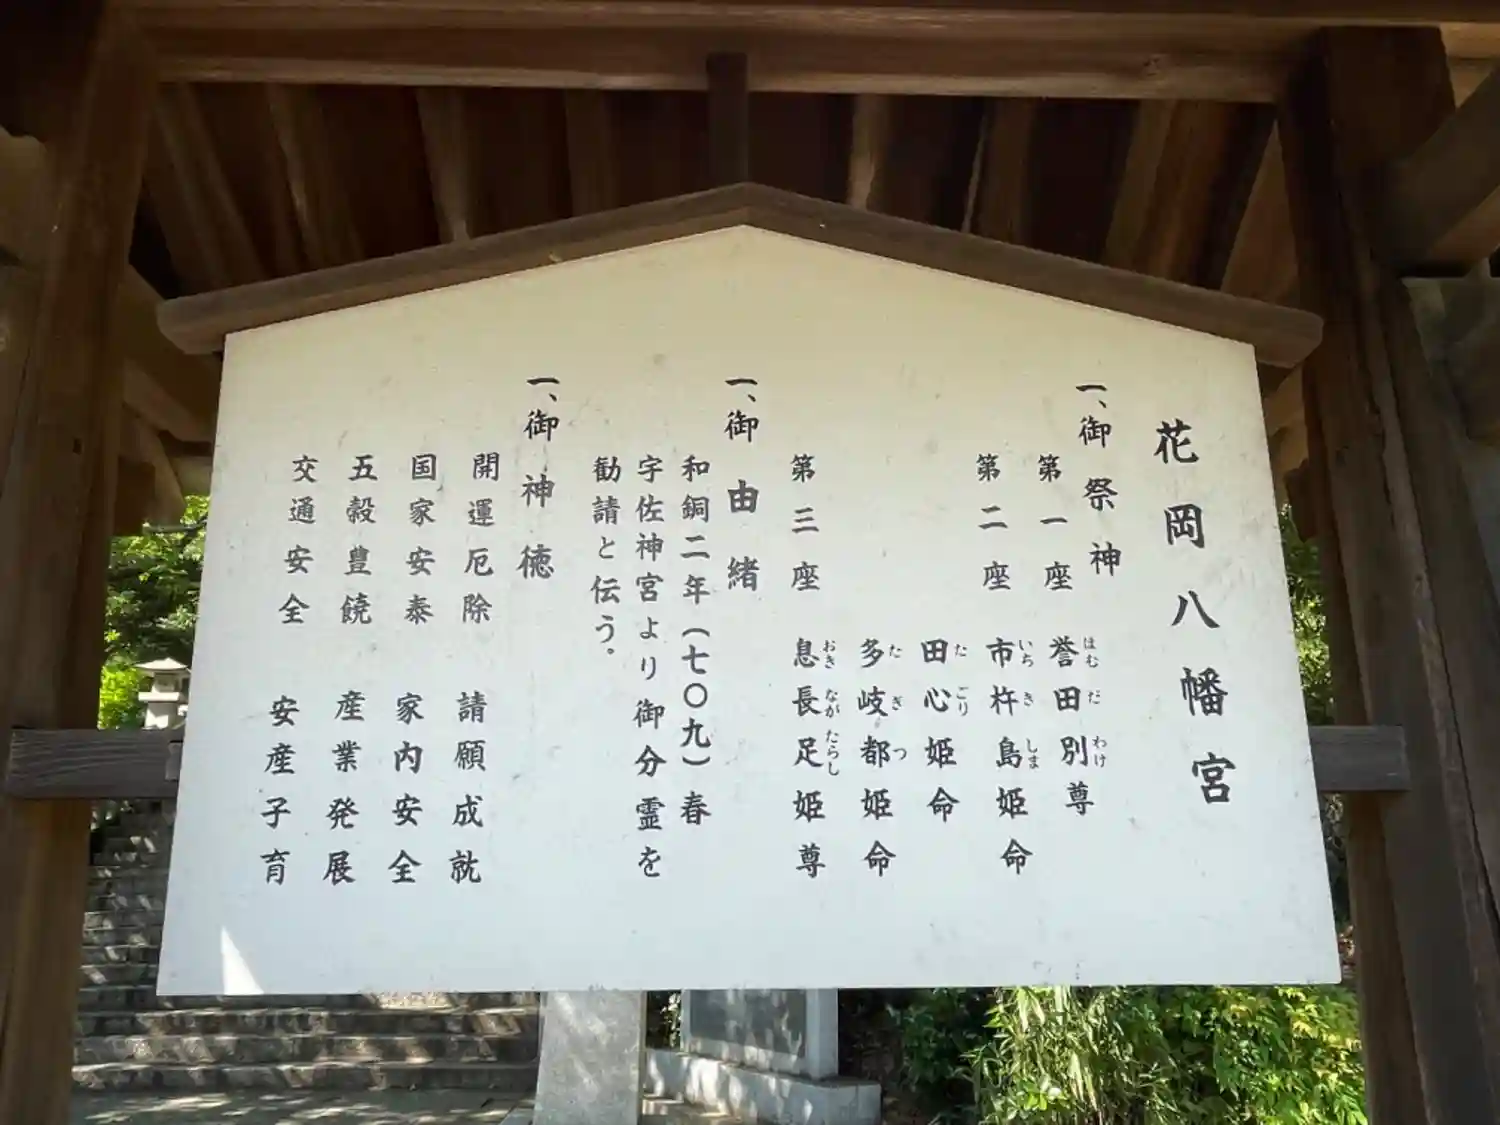 花岡八幡宮
一、御祭神
第一座 誉田別尊
ほむ だ わけ
第二座 市杵島姫命
いち き しま
田心姫命
た ごり
多岐都姫命
た ぎ つ
第三座 息長足姫尊
おき なが たらし
一、御由緒
和銅二年(七〇九)春
宇佐神宮より御分霊を
勧請と伝う。
一、御神徳
開運厄除 請願成就
国家安泰 家内安全
五穀豊饒 産業発展
交通安全 安産子育